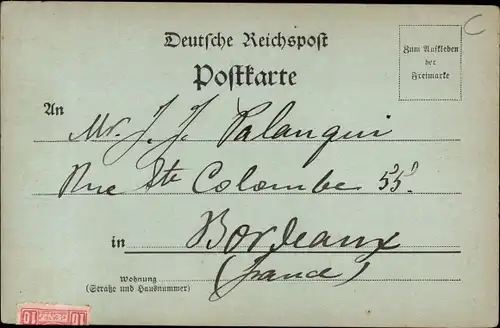 Deutsche Reichspost
Postkarte
Zum Aufkleben
der
Freimarke
An
Mr. J. J. Palanqui
Rue Ste Colombe 55
in Bordeaux
(France)
Wohnung
(Straße und Hausnummer)
10 10